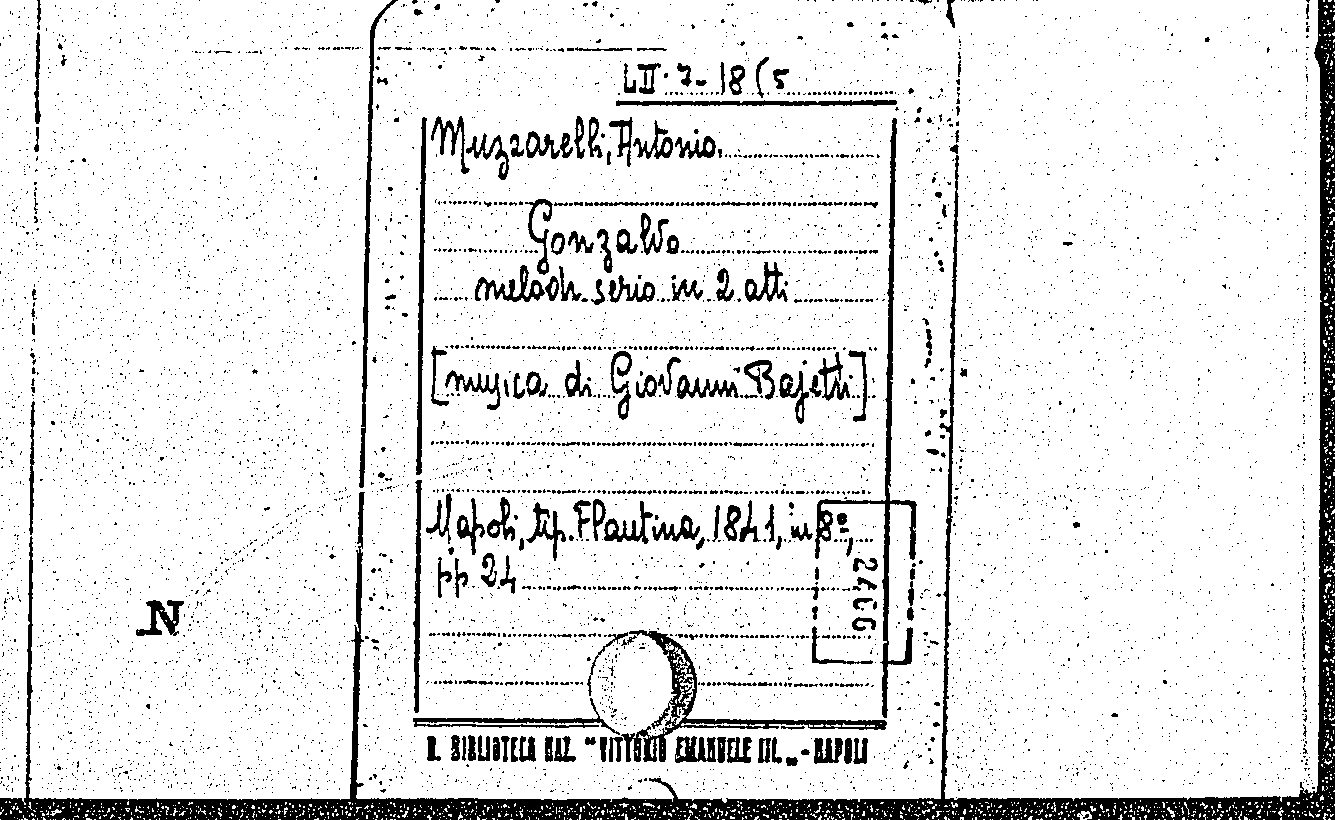 LII. 7- 18 (5
Muzzarelli, Antonio.
Gonzalvo
melodr. serio in 2 atti
[musica di Giovanni Bajetti]
Napoli, tip. Flautina, 1841, in 8º,
pp 24
N
R. BIBLIOTECA NAZ. "VITTORIO EMANUELE III„ - NAPOLI